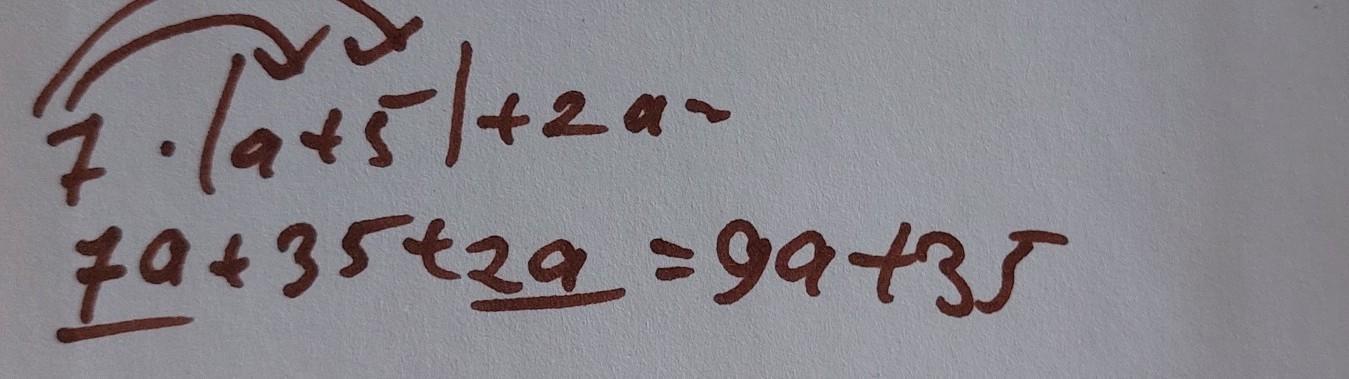 7 · (a+5)+2a=
7a+35+2a =9a+35